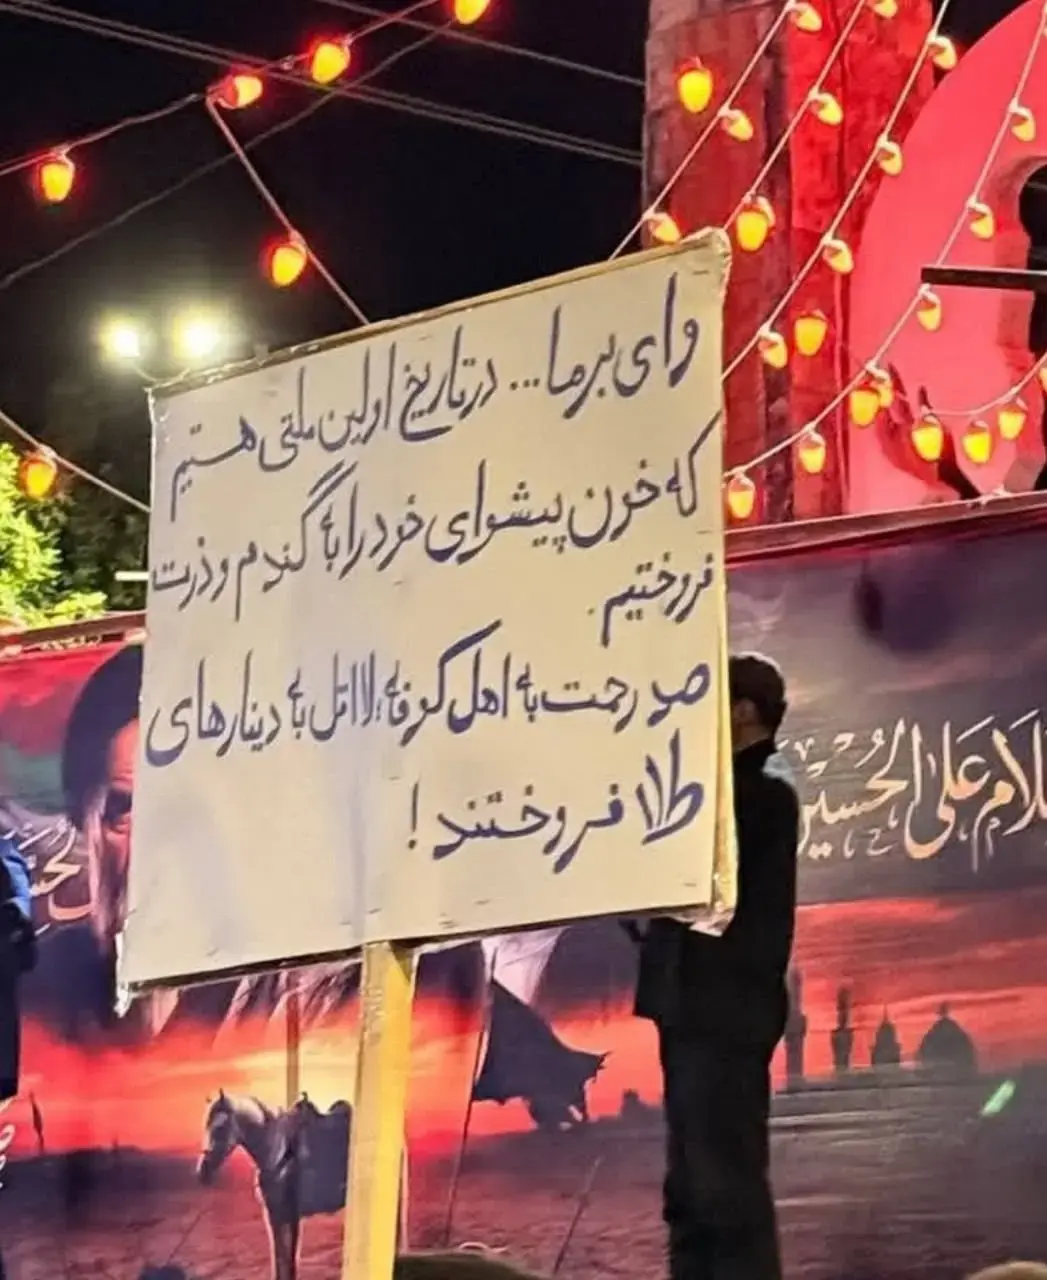 وای بر ما... در تاریخ اولین ملتی هستیم
که خون پیشوای خود را با گندم و ذرت
فروختیم.
صد رحمت به اهل کوفه، لااقل به دینارهای
طلا فروختند!
لام عَلَی الحُسین